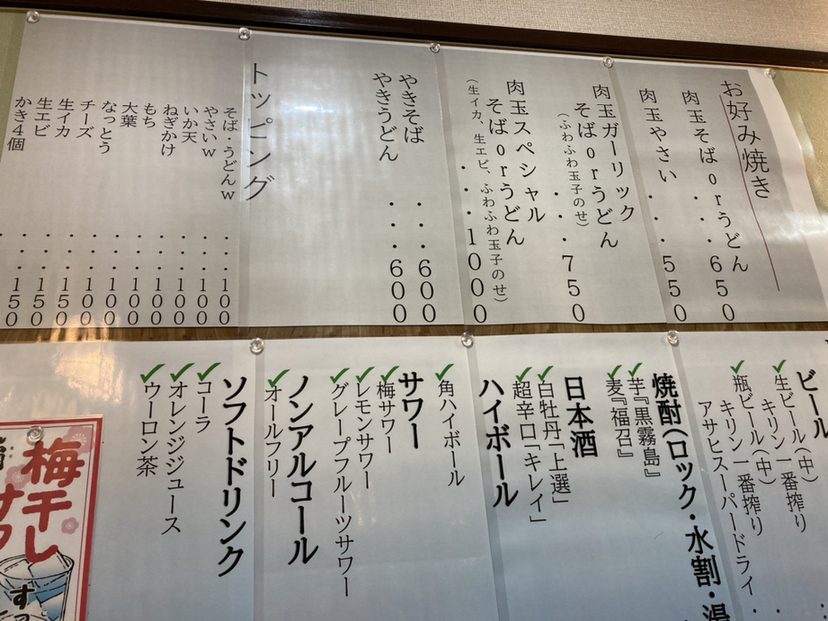 お好み焼き
肉玉そばorうどん
・・・650
肉玉やさい・・・550
肉玉ガーリック
そばorうどん
(ふわふわ玉子のせ)
・・・750
肉玉スペシャル
そばorうどん
(生イカ、生エビ、ふわふわ玉子のせ)
・・・1000
やきそば・・・600
やきうどん・・・600
トッピング
そば・うどんw・・・100
やさいw・・・100
いか天・・・100
ねぎかけ・・・100
もち・・・100
大葉・・・100
なっとう・・・100
チーズ・・・100
生イカ・・・150
生エビ・・・150
かき4個・・・150
ビール
✓生ビール(中)
キリン一番搾り
✓瓶ビール(中)
キリン一番搾り
アサヒスーパードライ
焼酎(ロック・水割・湯
✓芋『黒霧島』
✓麦『福召』
日本酒
✓白牡丹「上選」
✓超辛口「キレイ」
ハイボール
✓角ハイボール
サワー
✓梅サワー
✓レモンサワー
✓グレープフルーツサワー
ノンアルコール
✓オールフリー
ソフトドリンク
✓コーラ
✓オレンジジュース
✓ウーロン茶
梅干し
サワ